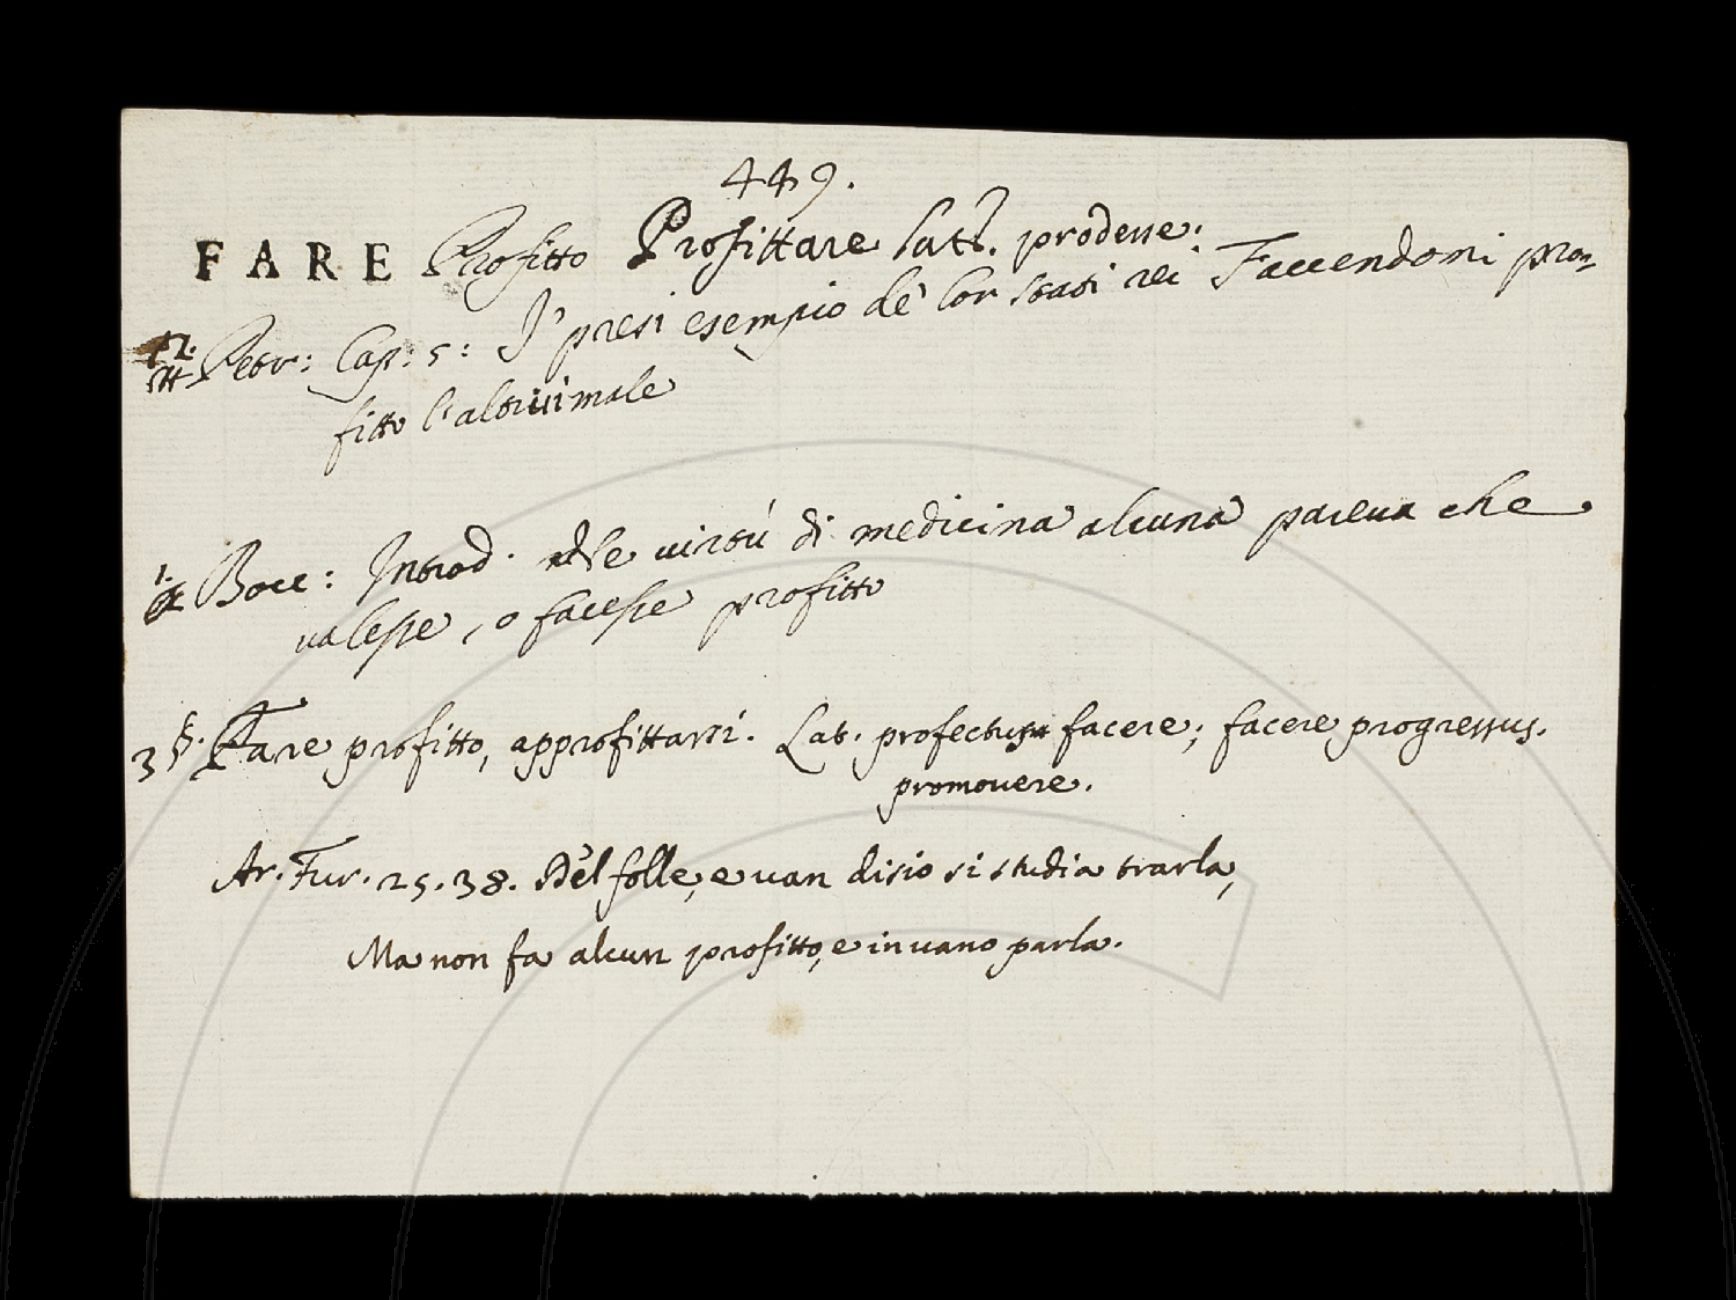 449.
FARE Profitto Profittare Latt. prodesse:
2. Petr: Cap: 5: J' presi esempio de' lor stati rei Faccendomi pro-
fitto l'altrui male
1. Bocc: Introd. ne virtú di medicina alcuna pareua che
ualesse, o facesse profitto
3 §. Fare profitto, approfittarsi. Lat. profectus facere; facere progressus.
promouere.
Ar. Fur. 25. 38. Dèl folle, e uan disio si studia trarla,
Ma non fa alcun profitto, e inuano parla.